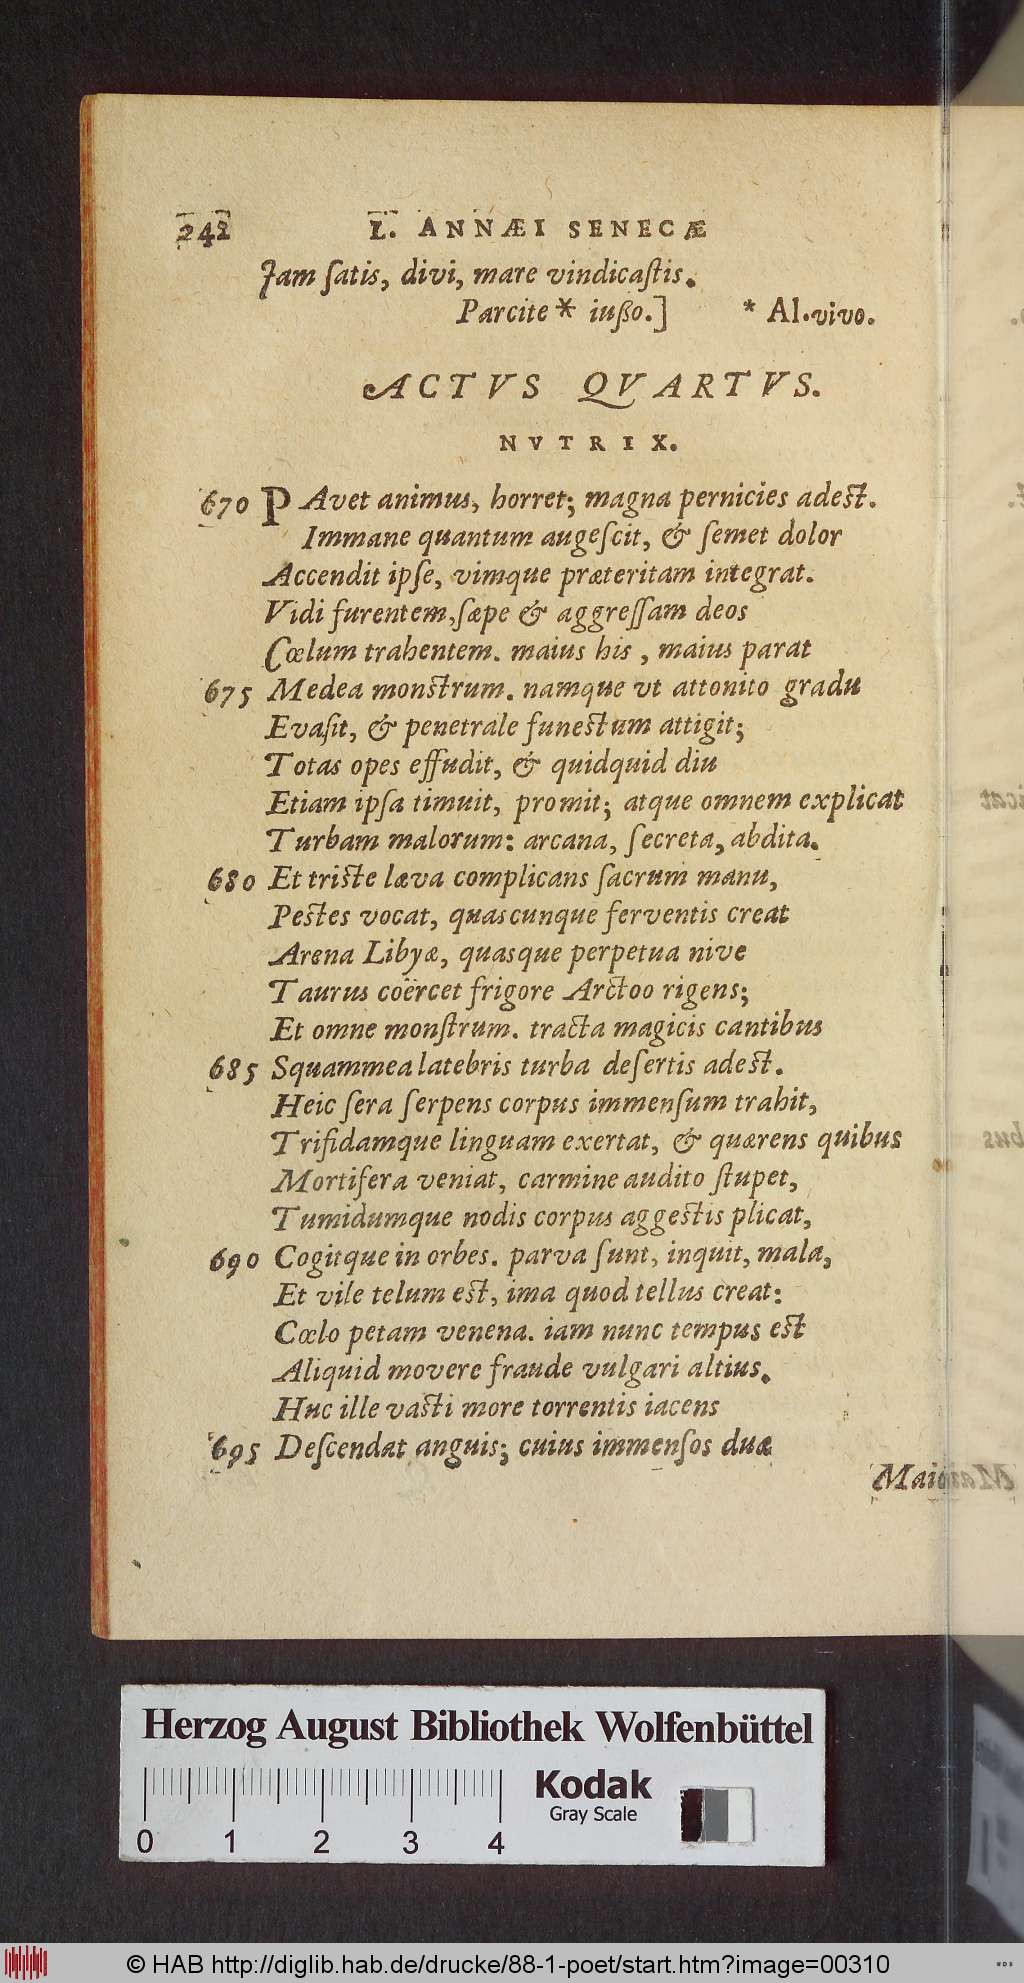 242 L. ANNÆI SENECÆ
Jam ſatis, divi, mare vindicaſtis.
Parcite * iuſſo.] * Al. vivo.
ACTVS QVARTVS.
NVTRIX.
670 PAvet animus, horret; magna pernicies adeſt.
Immane quantum augeſcit, & ſemet dolor
Accendit ipſe, vimque præteritam integrat.
Vidi furentem, ſæpe & aggreſſam deos
Cœlum trahentem. maius his, maius parat
675 Medea monſtrum. namque vt attonito gradu
Evaſit, & penetrale funeſtum attigit;
Totas opes effudit, & quidquid diu
Etiam ipſa timuit, promit; atque omnem explicat
Turbam malorum: arcana, ſecreta, abdita.
680 Et triſte læva complicans ſacrum manu,
Peſtes vocat, quascunque ferventis creat
Arena Libyæ, quasque perpetua nive
Taurus coërcet frigore Arctoo rigens;
Et omne monſtrum. tracta magicis cantibus
685 Squammea latebris turba deſertis adeſt.
Heic ſera ſerpens corpus immenſum trahit,
Trifidamque linguam exertat, & quærens quibus
Mortifera veniat, carmine audito ſtupet,
Tumidumque nodis corpus aggeſtis plicat,
690 Cogitque in orbes. parva ſunt, inquit, mala,
Et vile telum eſt, ima quod tellus creat:
Cœlo petam venena. iam nunc tempus eſt
Aliquid movere fraude vulgari altius.
Huc ille vaſti more torrentis iacens
695 Deſcendat anguis; cuius immenſos duæ
Maio
Herzog August Bibliothek Wolfenbüttel
0 1 2 3 4
Kodak
Gray Scale
© HAB http://diglib.hab.de/drucke/88-1-poet/start.htm?image=00310